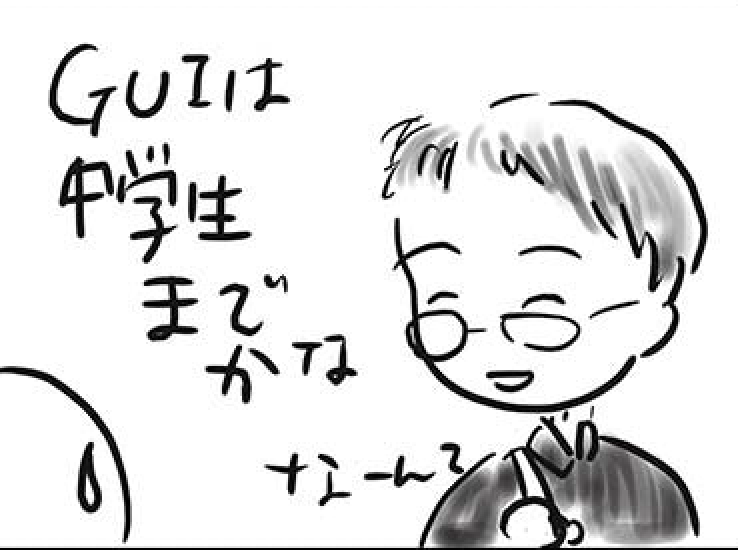 GUIは
中学生
まで
かな
なーんて